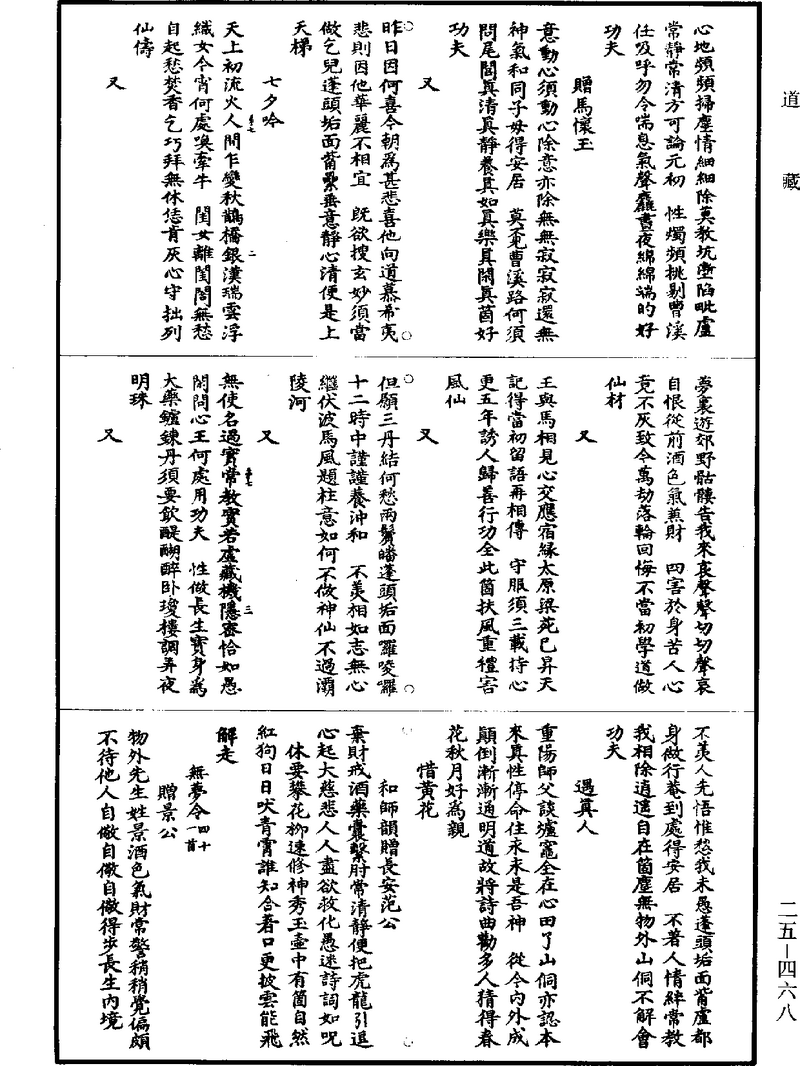 道藏
心地頻頻掃塵情細細除莫教坑壍陷毗盧
常靜常清方可論元初　性燭頻挑剔曹溪
任吸呼勿令喘息氣聲麤晝夜綿綿端的好
功夫
贈馬懷玉
意動心須動心除意亦除無無寂寂寂還無
神氣和同子母得安居　莫覔曹溪路何須
問尾閭眞清眞靜養眞如眞樂眞閑眞箇好
功夫
又
昨日因何喜今朝爲甚悲喜他向道慕希夷
悲則因他華麗不相宜　旣欲搜玄妙須當
做乞兒蓬頭垢面莆纍垂意靜心清便是上
天梯
七夕吟
天上初流火人間乍變秋鵲橋銀漢瑞雲浮
織女今宵何處喚牽牛　閨女離閨閤無愁
自起愁焚香乞巧拜無休恁肯灰心守拙列
仙儔
又
夢裏遊郊野骷髏告我來哀聲聲切切聲哀
自恨從前酒色氣兼財　四害於身苦人心
竟不灰致令萬劫落輪回悔不當初學道做
仙材
又
王與馬相見心交應宿緣太原梁苑已昇天
記得當初留語再相傳　守服須三載持心
更五年誘人歸善行功全此箇扶風重禮害
風仙
又
但願三丹結何愁兩鬢皤蓬頭垢面囉唆囉
十二時中謹謹養沖和　不羨相如志無心
繼伏波馬風題柱意如何不做神仙不過灞
陵河
又
無使名過實常教實若虛藏機隱密恰如愚
閑問心王何處用功夫　性做長生寶身爲
大藥鑪鍊丹須要飲醍醐醉卧瓊樓調弄夜
明珠
又
不羨人先悟惟愁我未愚蓬頭垢面莆盧都
身做行菴到處得安居　不著人情絆常教
我相除逍遙自在箇塵無物外山侗不解會
功夫
遇眞人
重陽師父談爐竈全在心田了山侗亦認本
來眞性停命住永永是吾神　從今內外成
顚倒漸漸通明道故將詩曲勸多人猜得春
花秋月好爲親
惜黃花
和師韻贈長安范公
棄財戒酒藥囊繫肘常清靜便把虎龍引逗
心起大慈悲人人盡欲救化愚迷詩詞如呪
休要攀花柳速修神秀玉壺中有箇自然
紅狗日日吠青霄誰知合著口更披雲能飛
解走
無夢令四十一首
贈景公
物外先生姓景酒色氣財常警稍稍覺偏頗
不待他人自儆自儆自儆得步長生內境
二五—四六八